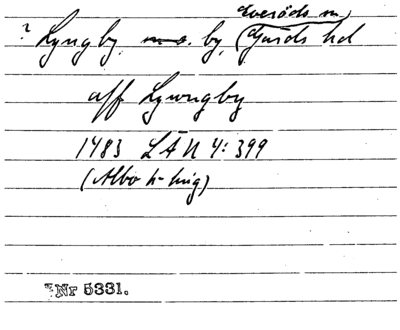 Everöds sn,
? Lyngby, m o. by, Gärds hd
aff Lyungby
1483 LÄN 4: 399
(Albo h-ting)
Nr 5331.